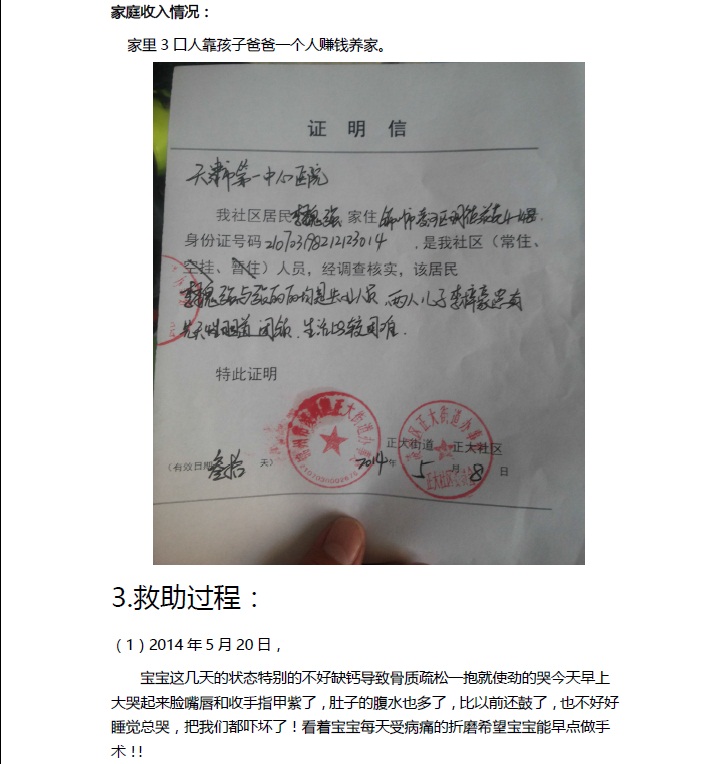 家庭收入情况：
家里 3 口人靠孩子爸爸一个人赚钱养家。
证 明 信
天津市第一中心医院
我社区居民李魏强家住
身份证号码210703198212123014，是我社区（常住、
空挂、暂住）人员，经调查核实，该居民
李魏强与张丽丽均是失业人员，两人儿子李梓豪患有
先天性胆道闭锁，生活比较困难.
特此证明
正大街道 正大社区
（有效日期叁拾天）
2014年5月8日
3.救助过程：
（1）2014 年 5 月 20 日，
宝宝这几天的状态特别的不好缺钙导致骨质疏松一抱就使劲的哭今天早上
大哭起来脸嘴唇和收手指甲紫了，肚子的腹水也多了，比以前还鼓了，也不好好
睡觉总哭，把我们都吓坏了！看着宝宝每天受病痛的折磨希望宝宝能早点做手
术！!